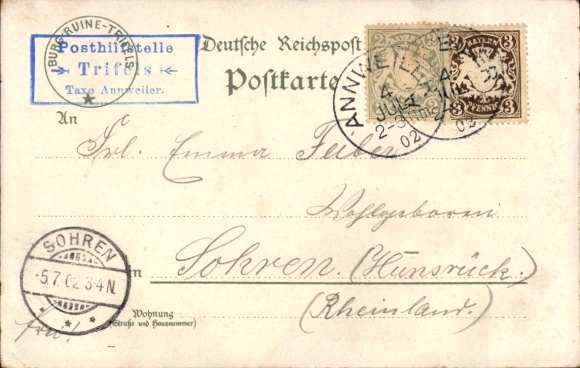 BURG-RUINE-TRIFELS
Posthilfstelle
Trifels
Taxe Annweiler.
Deutsche Reichspost
Postkarte
2 BAYERN 2
3 BAYERN 3
3 PFENNIG 3
ANNWEILER
4
JUL
2-3
02
ANNWEILER
4
02
An
Frl. Emma Faber
Wohlgeboren
in Sohren. (Hunsrück.)
(Rheinland.)
SOHREN
5.7.02 3-4N.
Wohnung
(Straße und Hausnummer)
frei!